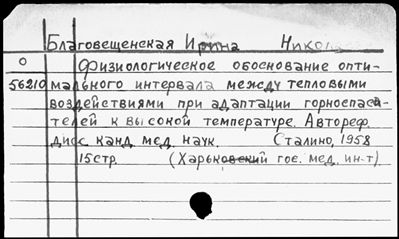 Благовещенская Ирина
О Физиологическое обоснование опти-
56210 мального интервала между тепловыми
воздействиями при адаптации горноспаса-
телей к высокой температуре. Автореф.
дисс. канд. мед. наук. Сталино, 1958
15 стр. (Харьковский гос. мед. ин-т)